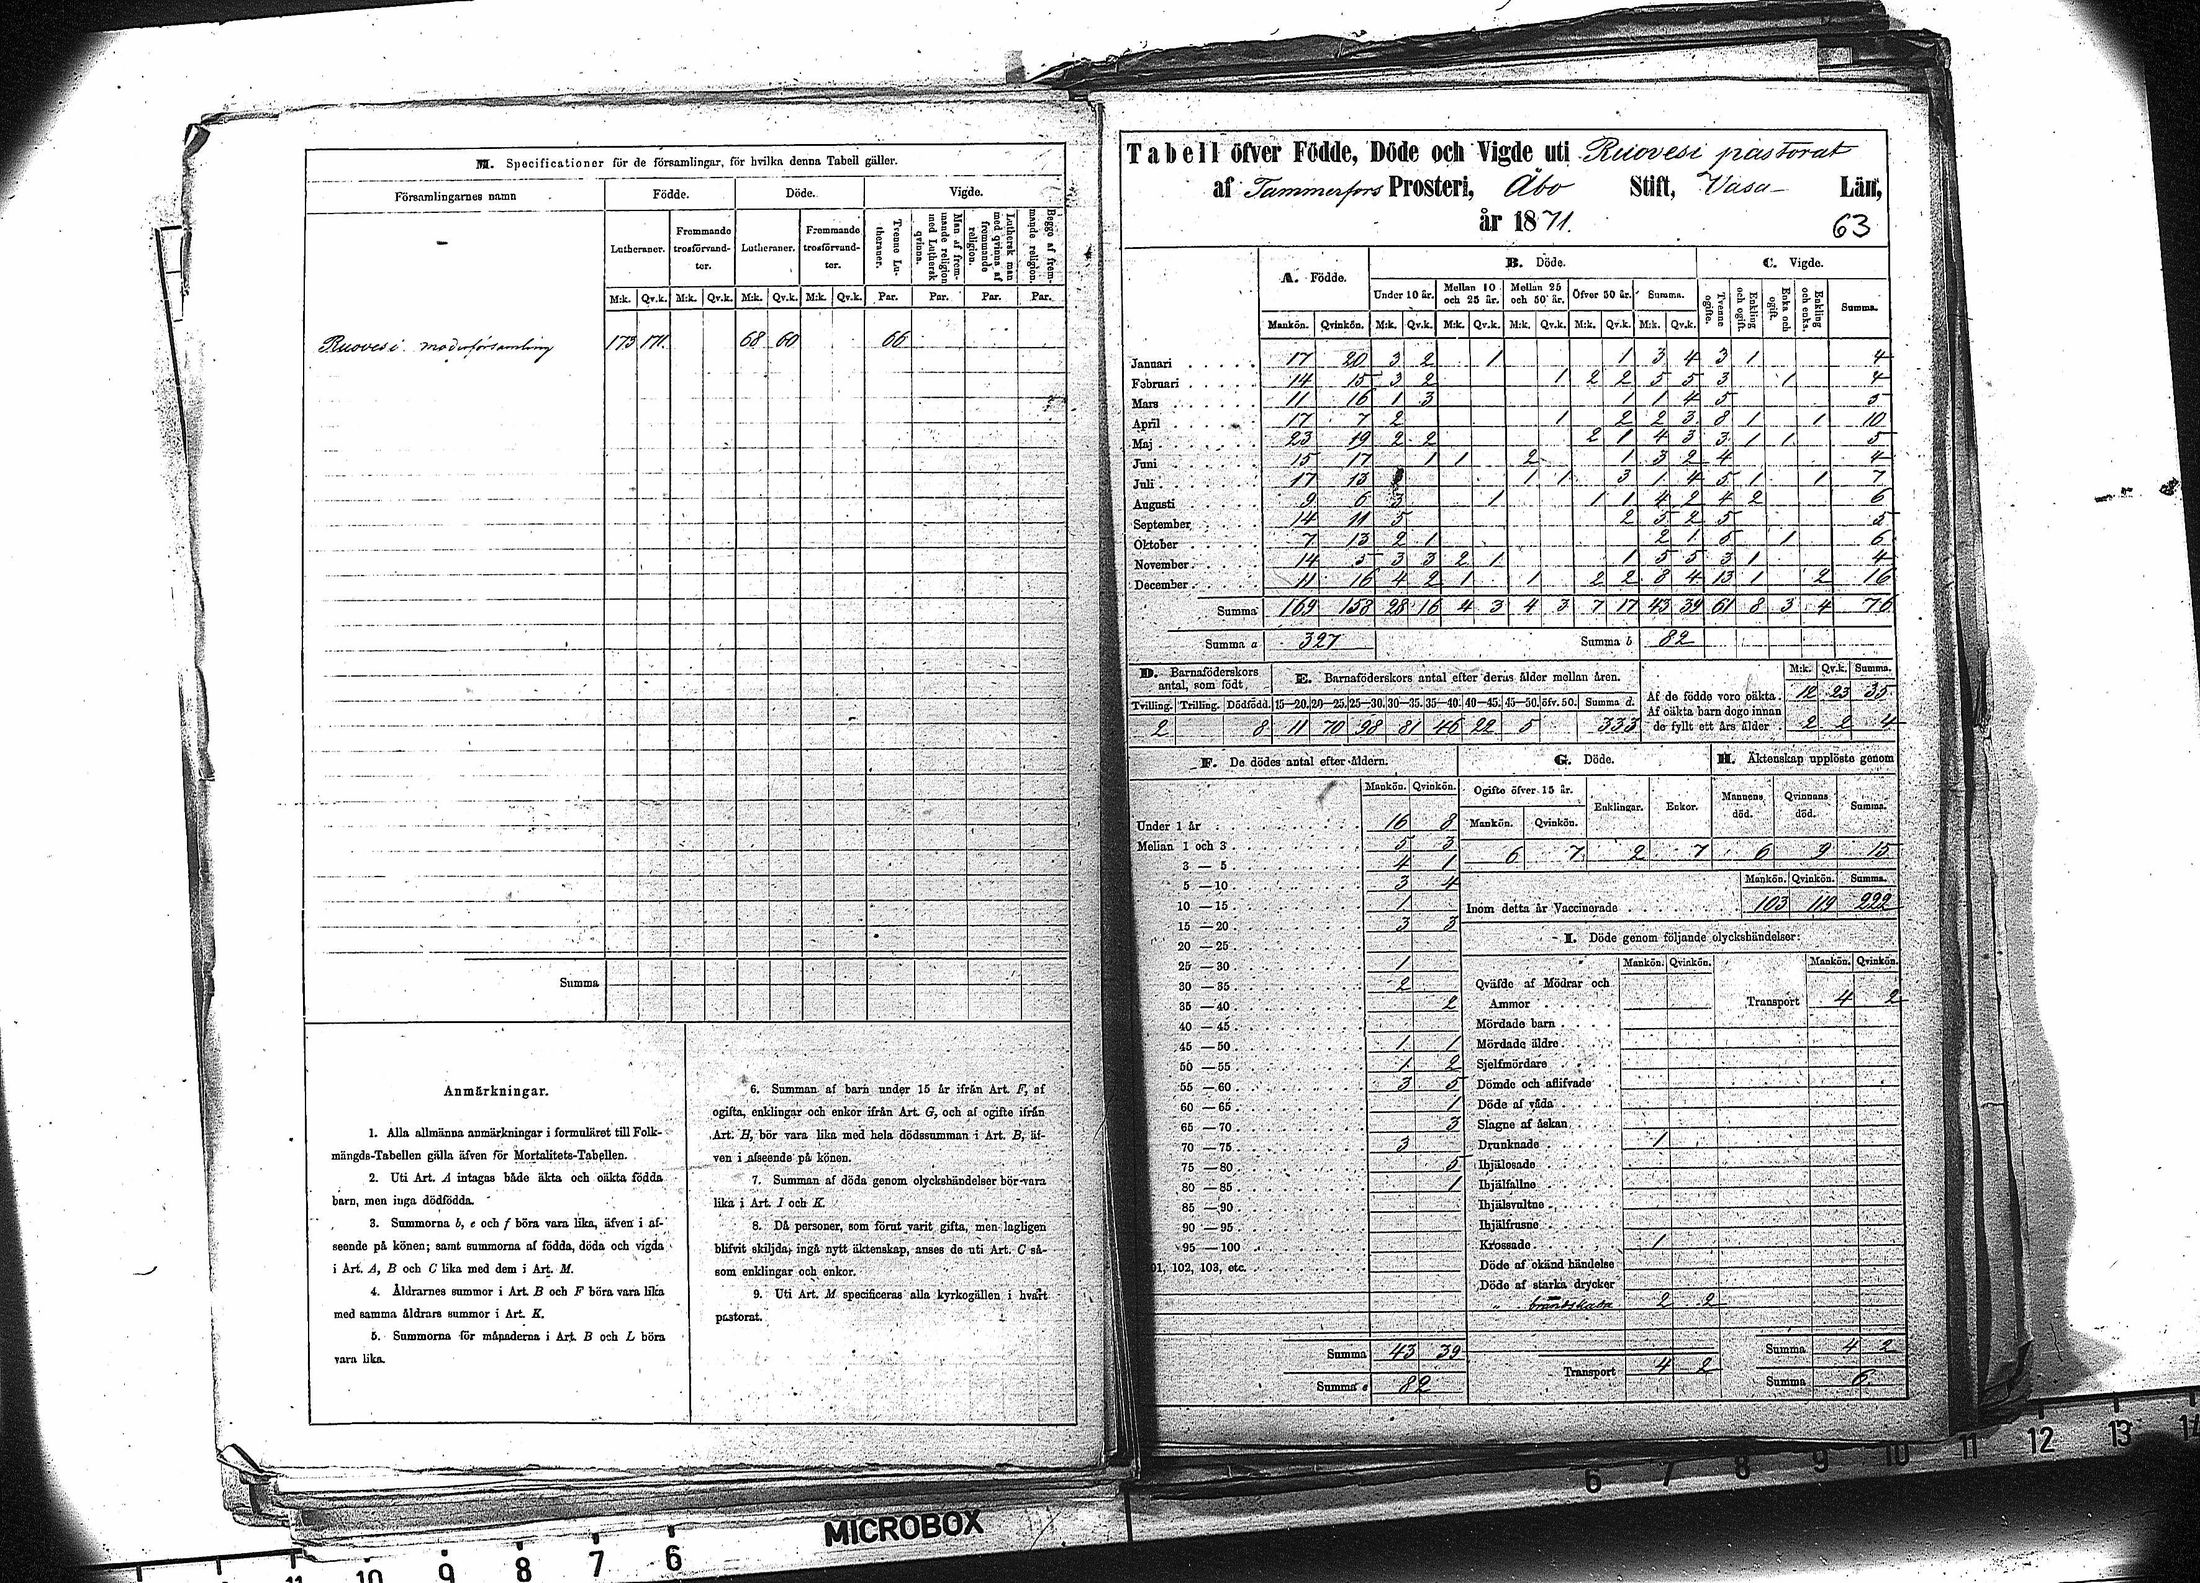 M. Specificationer för de församlingar, för hvilka denna Tabell gäller.
Församlingarnes namn Födde. Döde. Vigde.
Lutheraner. Fremmande trosförvandter. Lutheraner. Fremmande trosförvandter. Tvenne Lutheraner. Man af fremmande religion med Luthersk qvinna. Luthersk man med qvinna af fremmande religion. Begge af fremmande religion.
M:k. Qv.k. M:k. Qv.k. M:k. Qv.k. M:k. Qv.k. Par. Par. Par. Par.
Ruovesi moderförsamling 173 171. 68 60 66
Summa
Anmärkningar.
1. Alla allmänna anmärkningar i formuläret till Folk-
mängds-Tabellen gälla äfven för Mortalitets-Tabellen.
2. Uti Art. A intagas både äkta och oäkta födda
barn, men inga dödfödda.
3. Summorna b, e och f böra vara lika, äfven i af-
seende på könen; samt summorna af födda, döda och vigda
i Art. A, B och C lika med dem i Art. M.
4. Åldrarnes summor i Art. B och F böra vara lika
med samma åldrars summor i Art. K.
5. Summorna för månaderna i Art. B och L böra
vara lika.
6. Summan af barn under 15 år ifrån Art. F, af
ogifta, enklingar och enkor ifrån Art. G, och af ogifte ifrån
Art. H, bör vara lika med hela dödssumman i Art. B, äf-
ven i afseende på könen.
7. Summan af döda genom olyckshändelser bör vara
lika i Art. I och K.
8. Då personer, som förut varit gifta, men lagligen
blifvit skiljda, ingå nytt äktenskap, anses de uti Art. C så-
som enklingar och enkor.
9. Uti Art. M specificeras alla kyrkogällen i hvart
pastorat.
Tabell öfver Födde, Döde och Vigde uti Ruovesi pastorat
af Tammerfors Prosteri, Åbo Stift, Vasa Län,
år 1871.
63
A. Födde. B. Döde. C. Vigde.
Under 10 år. Mellan 10 och 25 år. Mellan 25 och 50 år. Öfver 50 år. Summa. Tvenne ogifte. Enkling och ogift. Enka och ogift. Enkling och enka. Summa.
Mankön. Qvinkön. M:k. Qv.k. M:k. Qv.k. M:k. Qv.k. M:k. Qv.k. M:k. Qv.k.
Januari 17 20 3 2 1 1 3 4 3 1 4
Februari 14 15 3 2 1 2 2 5 5 3 1 4
Mars 11 16 1 3 1 1 4 5 5
April 17 7 2 1 2 2 3 8 1 1 10
Maj 23 19 2 2 2 1 4 3 3 1 1 5
Juni 15 17 1 1 2 1 3 2 4 4
Juli 17 13 1 1 3 1 4 5 1 1 7
Augusti 9 6 3 1 1 1 4 2 4 2 6
September 14 11 5 2 5 2 5 5
Oktober 7 13 2 1 2 1 5 1 6
November 14 5 3 3 2 1 1 5 5 3 1 4
December 11 16 4 2 1 1 2 2 8 4 13 1 2 16
Summa 169 158 28 16 4 3 4 3 7 17 43 39 61 8 3 4 76
Summa a 327 Summa b 82
D. Barnaföderskors antal, som födt
Tvilling. Trilling. Dödfödd.
2 8
E. Barnaföderskors antal efter deras ålder mellan åren.
15—20. 20—25. 25—30. 30—35. 35—40. 40—45. 45—50. öfv. 50. Summa d.
11 70 98 81 46 22 5 333
M:k. Qv.k. Summa.
Af de födde voro oäkta. 12 23 35
Af oäkta barn dogo innan
de fyllt ett års ålder 2 2 4
F. De dödes antal efter åldern.
Mankön. Qvinkön.
Under 1 år 16 8
Mellan 1 och 3 5 3
3 — 5 4 1
5 — 10 3 4
10 — 15 1
15 — 20 3 3
20 — 25
25 — 30 1
30 — 35 2
35 — 40 2
40 — 45
45 — 50 1 1
50 — 55 1 2
55 — 60 3 5
60 — 65 1
65 — 70 3
70 — 75 3
75 — 80 5
80 — 85 1
85 — 90
90 — 95
95 — 100
01, 102, 103, etc.
Summa 43 39
Summa e 82
G. Döde.
Ogifte öfver 15 år. Enklingar. Enkor.
Mankön. Qvinkön.
6 7 2 7
H. Äktenskap upplöste genom
Mannens död. Qvinnans död. Summa.
6 9 15
Mankön. Qvinkön. Summa.
Inom detta år Vaccinerade 103 119 222
I. Döde genom följande olyckshändelser:
Mankön. Qvinkön. Mankön. Qvinkön.
Qväfde af Mödrar och
Ammor Transport 4 2
Mördade barn
Mördade äldre
Sjelfmördare
Dömde och aflifvade
Döde af våda
Slagne af åskan
Drunknade 1
Ihjälosade
Ihjälfallne
Ihjälsvultne
Ihjälfrusne
Krossade 1
Döde af okänd händelse
Döde af starka drycker
" brännskada 2 2
Transport 4 2
Summa 4 2
Summa 6
MICROBOX
11 10 9 8 7 6
6 7 8 9 10 11 12 13 14